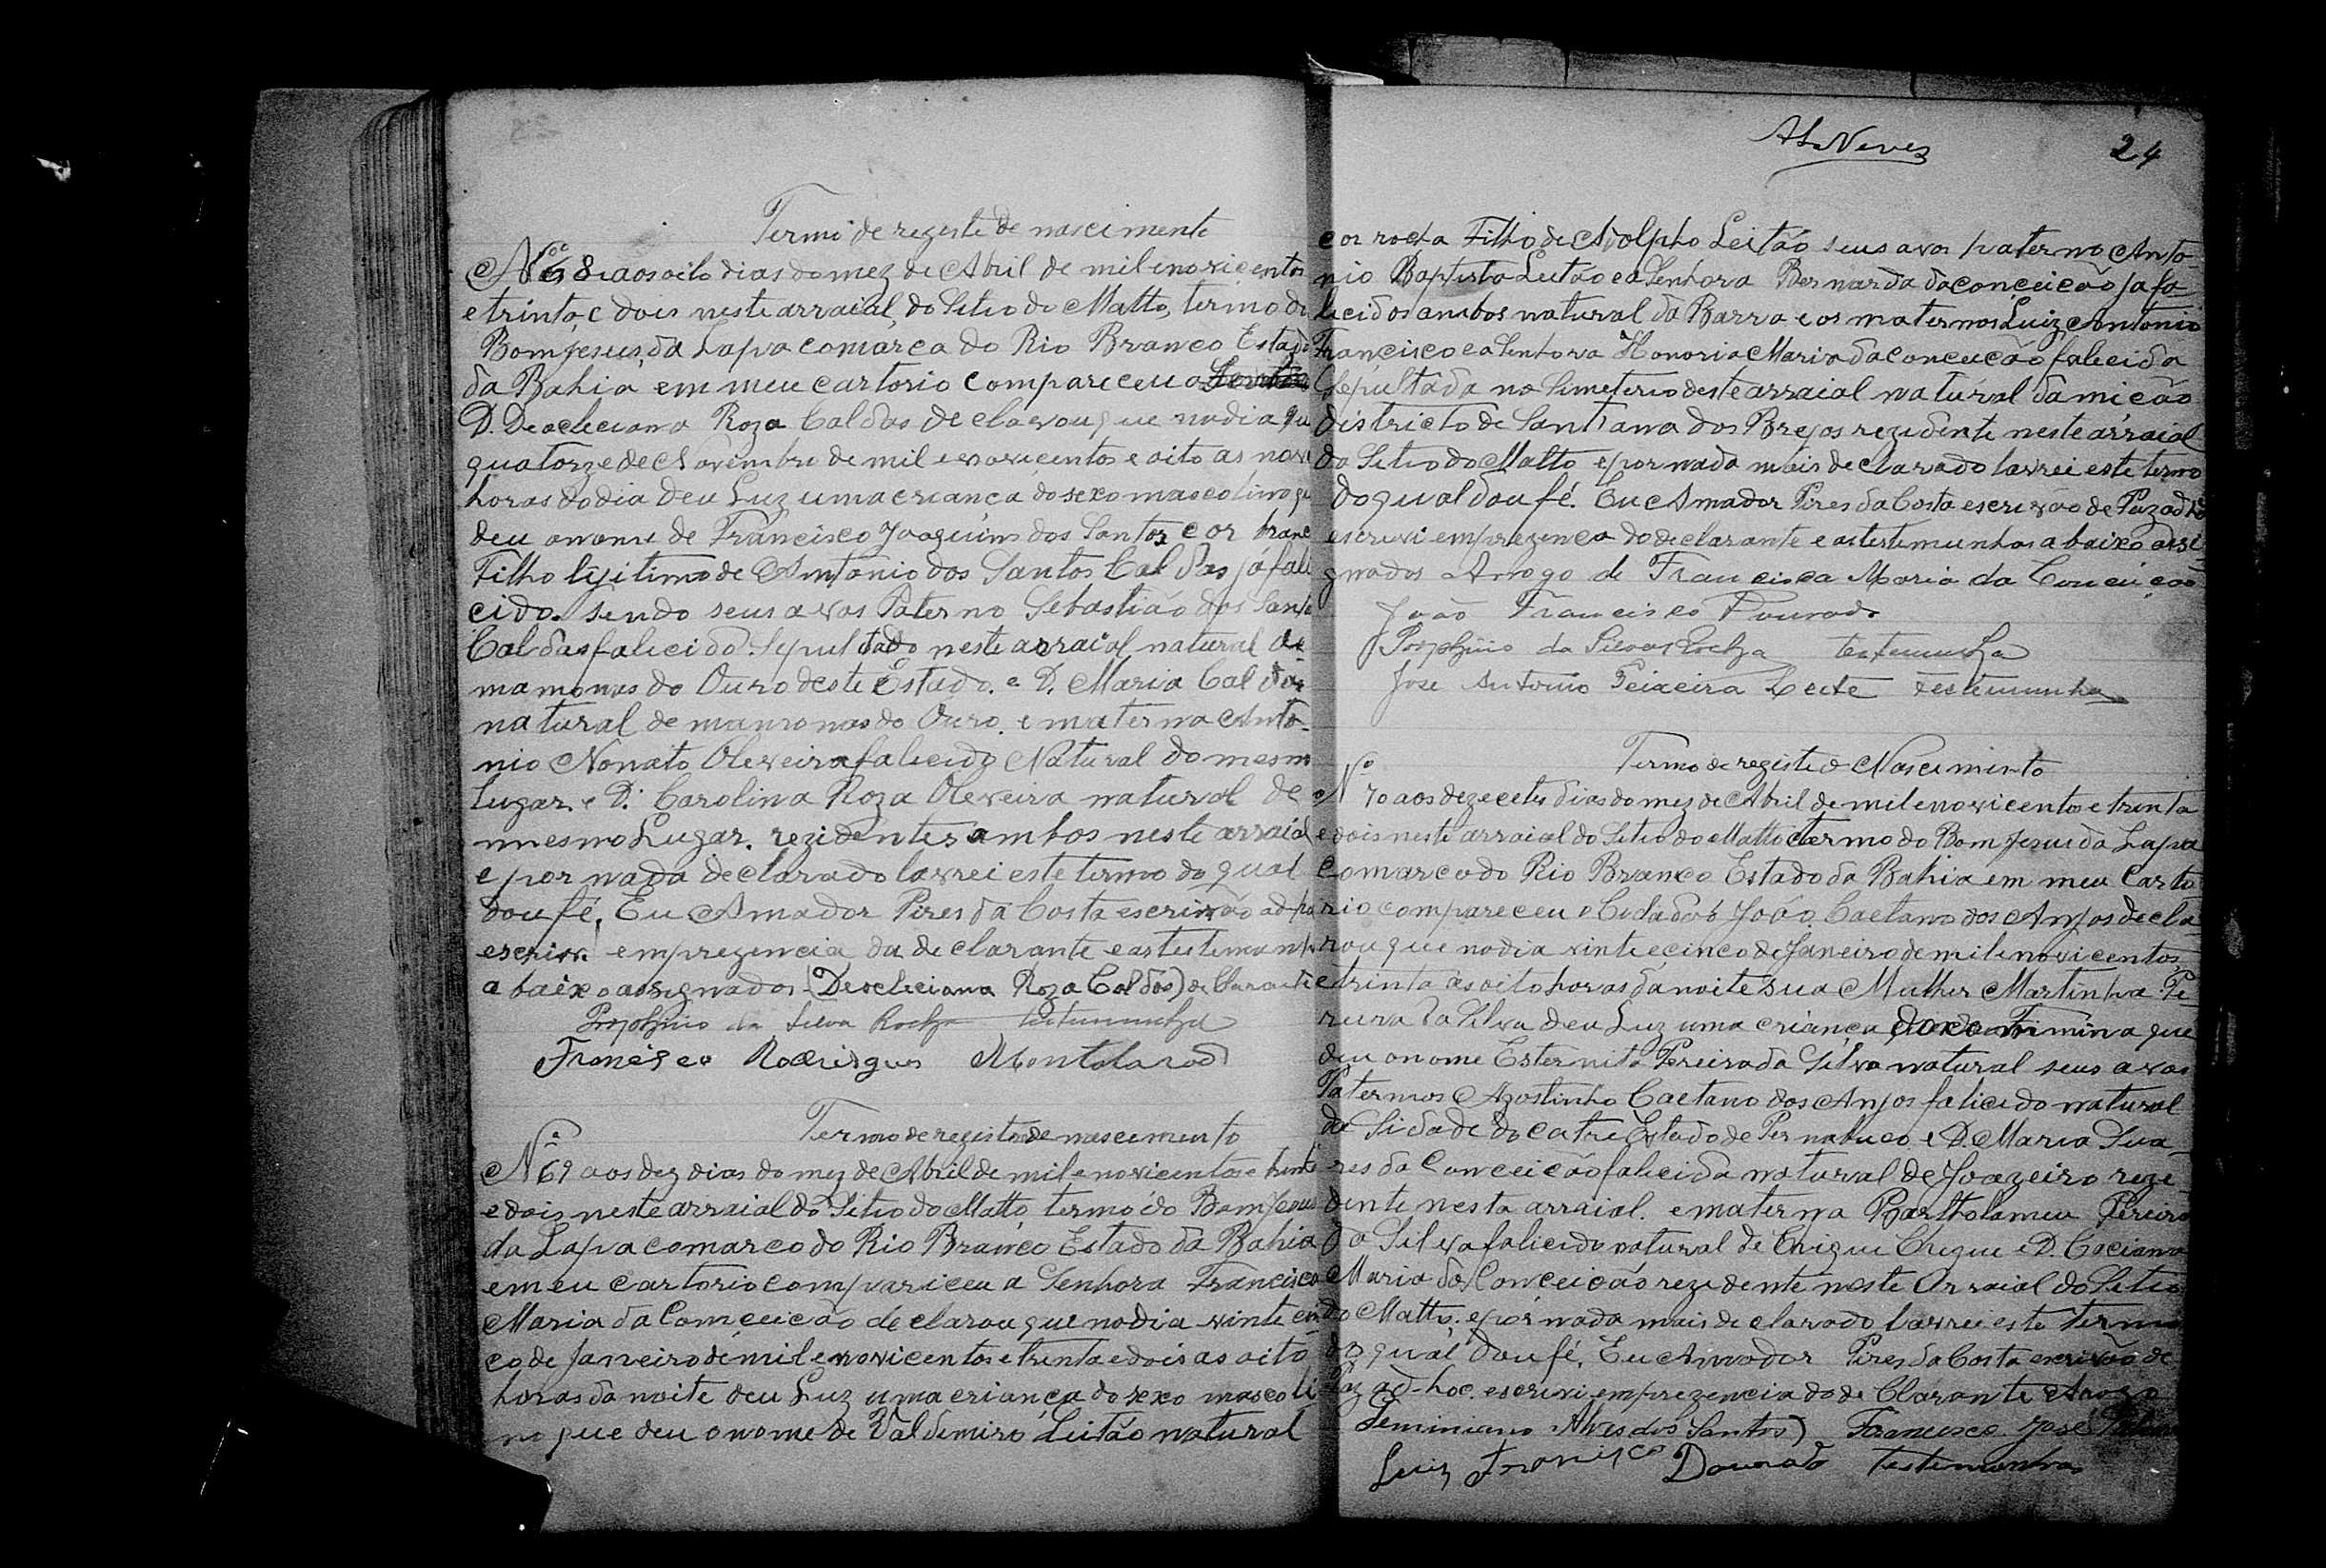 Termo de registe de nascimento
Nº 68 aos oito dias do mez de Abril de mil e novicentos
e trinta e dois neste arraial, do Sitio do Matto, termo do
Bom Jesus, da Lapa comarca do Rio Branco Estado
da Bahia, em meu cartorio compareceu a
D. Deocleciana Roza Caldas declarou que no dia
quatorze de Novembro de mil e novicentos e oito as nove
horas do dia deu Luz uma criança do sexo mascolino qu
deu o nome de Francisco Joaquim dos Santos cor branc
Filho ligitimo de Antonio dos Santos Caldas já fale
cido. sendo seus avos Paterno Sebastião dos Santo
Caldas falicido. Sepultado neste arraial natural de
mamonas do Ouro deste Estado. e D. Maria Caldas
natural de mamonas do Ouro. e materna Anto-
nio Nonato Oliveira falicido Natural do mesmo
lugar. e D. Carolina Roza Oleveira natural de
mesmo Lugar. rezidentes ambos neste arraial
e por nada declarado lavrei este termo do qual
dou fé. Eu Amador Pires da Costa escrivão ad-ho
escrivi emprezencia da declarante e as testemunh
abaixo assignados (Deocleciana Roza Caldas) declarante
Porphirio da Silva Rocha testemunha
Francisco Rodrigues
Termo de registro de nascimento
Nº 69 aos dez dias do mez de Abril de mil e novicentos e trinta
e dois neste arraial do Sitio do Matto, termo do Bom Jesus
da Lapa comarca do Rio Branco Estado da Bahia
em eu cartorio compariceu a Senhora Francisca
Maria da Comceicão declarou que no dia vinte cin
co de Janeiro de mil e novicentos e trenta e dois as oito
horas da noite deu Luz uma criança do sexo mascoli
no que deu o nome de Valdimiro Leitão natural
ALNeves 24
cor rocha Filho de Adolpho Leitão seus avos paterno Anto-
nio Baptista Leitão e a Senhora Bernarda da conceicão ja fa-
lecidos ambos natural da Barra e os maternos Luiz Antonio
Francisco e a Senhora Honoria Maria da conceicão falicida
Sepultada no Simeterio deste arraial natural da micão
districto de Santana dos Brejos rezidente neste arraial
do Sitio do Matto e por nada mais declarado lavrei este termo
do qual dou fé. Eu Amador Pires da Costa escrivão de Paz ad ho
escrivi emprezenca do declarante e as testemunhas abaixo assi
gnados Arrogo de Francisca Maria da Conceição
João Francisco Dourado
Porphirio da Silva Rocha testemunha
Jose Antonio Teixeira Leite testemunha
Termo de registe de Nascimento
Nº 70 aos dezecete dias do mez de Abril de mil e novicentos e trenta
e dois neste arraial do Sitio do Matto termo do Bom Jesus da Lapa
comarca do Rio Branco Estado da Bahia em meu Carto
rio, compareceu o Cidadão João Caetano dos Anjos decla
rou que no dia vinte e cinco de Janeiro de mil e novicentos
e trinta as oito horas da noite sua Mulher Martinha Pe
reira da Silva deu Luz uma criança do sexo Fiminina que
deu o nome Esternita Pereira da Silva natural seus avos
Paternos Agostinho Caetano dos Anjos falicido natural
da Sidade do catre Estado de Pernabuco e D. Maria Sua-
res da Conceicão falicida natural de Joazeiro reze-
dente nesta arraial. e materna Bartholameu Pereira
da Silva falicido natural de Chique Chique e D. Caciana
Maria da Conceicão rezidente neste Arraial do Sitio
do Matto. e por nada mais declarado lavrei este termo
do qual dou fé, Eu Amador Pires da Costa escrivão de
Paz ad-hoc. escrivi emprezencia do declarante Arrogo
Seminiano Alves dos Santos) Francisco José
Luiz Francisco Dourado Testemunhas